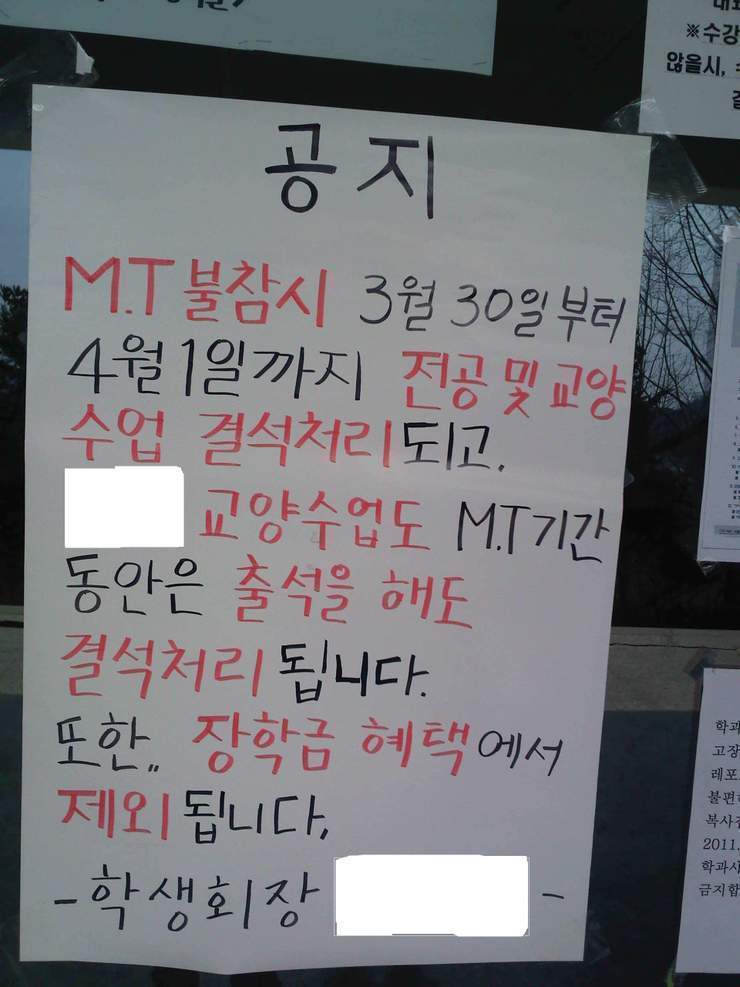 공지
M.T 불참시 3월 30일부터
4월1일까지 전공 및 교양
수업 결석처리되고.
교양수업도 M.T기간
동안은 출석을 해도
결석처리 됩니다.
또한,, 장학금 혜택에서
제외됩니다.
-학생회장 -
※수강
않을시,
학과
고장
레포
불편
복사
2011.
학과사
금지합